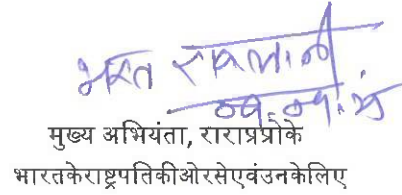 भरत
मुख्य अभियंता, राराप्रप्रोके
भारतकेराष्ट्रपतिकीओरसेएवंउनकेलिए